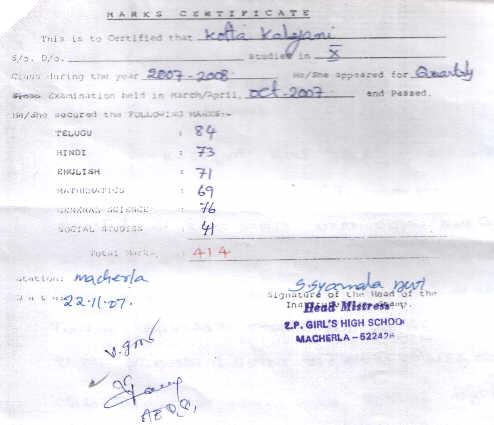 MARKS CERTIFICATE
This is to Certified that Kotta Kalyani
S/o. D/o. studies in X
Class during the year 2007-2008 He/She appeared for Quarterly
Examination held in March/April, Oct-2007 and Passed.
He/She secured the FOLLOWING MARKS:-
TELUGU : 84
HINDI : 73
ENGLISH : 71
MATHEMATICS : 69
GENERAL SCIENCE : 76
SOCIAL STUDIES : 41
Total Marks : 414
Station: macherla S. Syamala Devi
Date: 22-11-07. Signature of the Head of the
Head Mistress
Z.P. GIRL'S HIGH SCHOOL
MACHERLA-522426